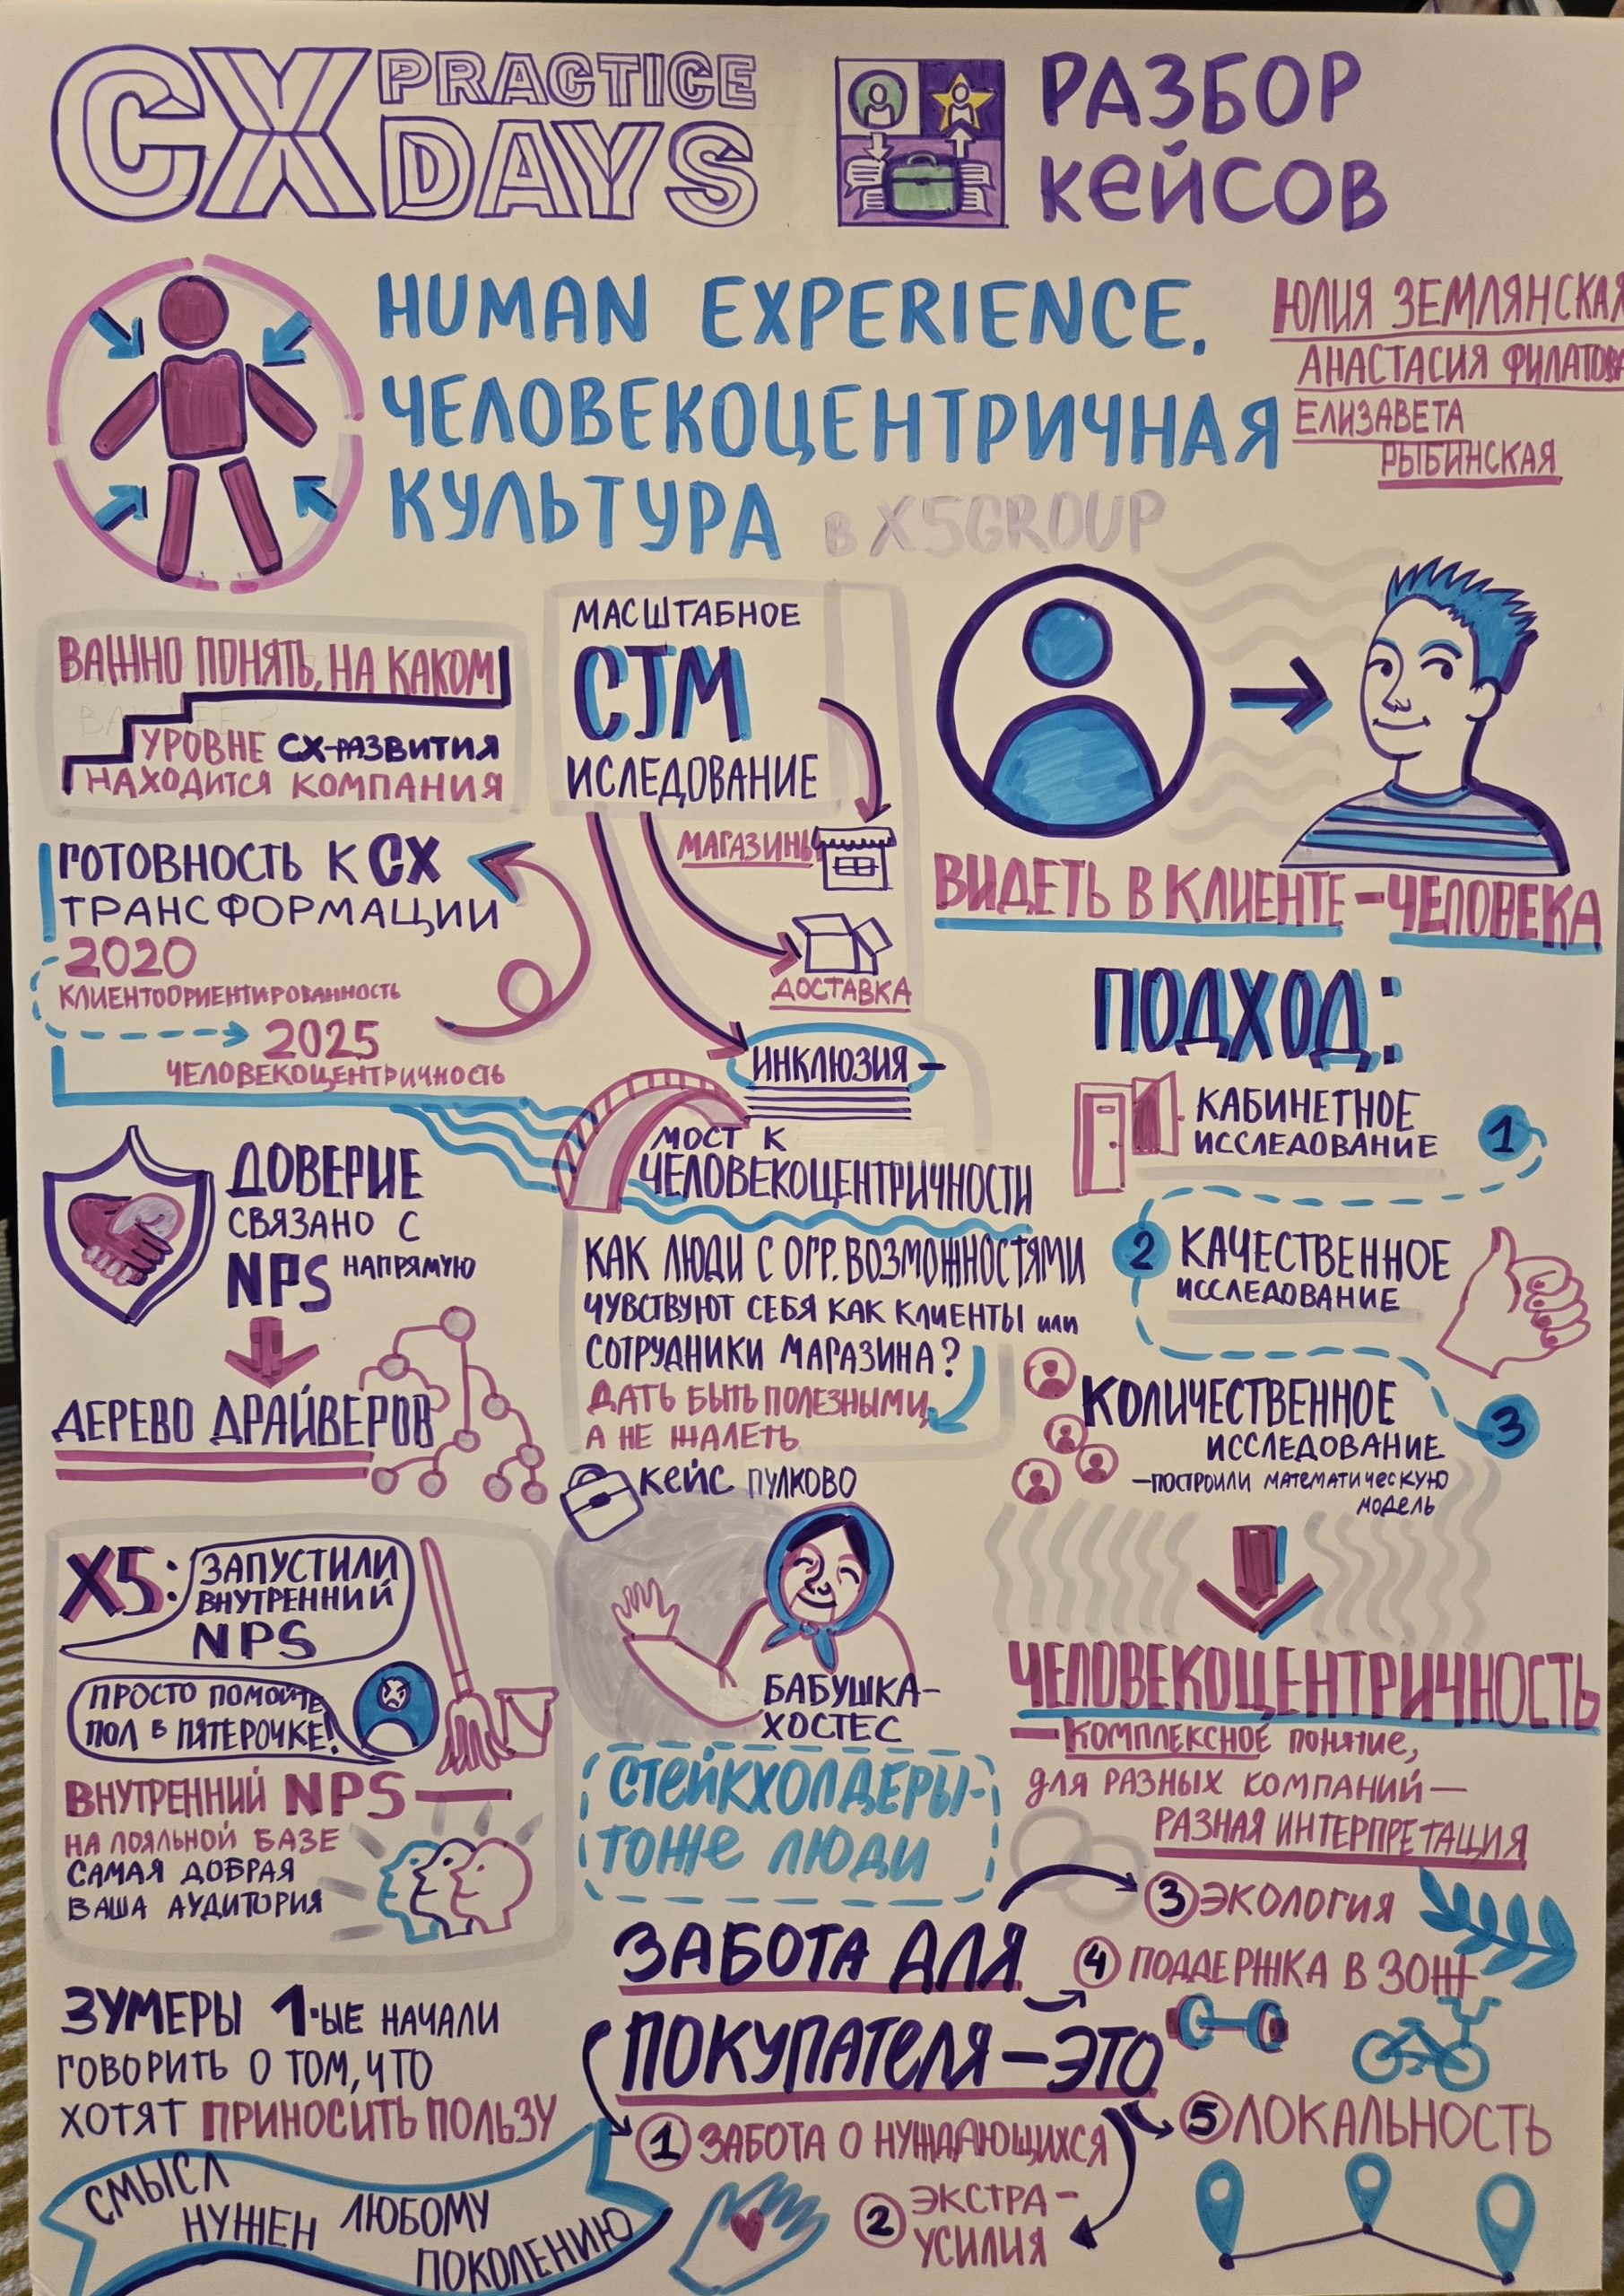 CX PRACTICE DAYS
РАЗБОР
КЕЙСОВ
HUMAN EXPERIENCE.
ЧЕЛОВЕКОЦЕНТРИЧНАЯ
КУЛЬТУРА в X5GROUP
ЮЛИЯ ЗЕМЛЯНСКАЯ
АНАСТАСИЯ ФИЛАТОВА
ЕЛИЗАВЕТА
РЫБИНСКАЯ
ВАЖНО ПОНЯТЬ, НА КАКОМ
УРОВНЕ CX-РАЗВИТИЯ
НАХОДИТСЯ КОМПАНИЯ
ГОТОВНОСТЬ К CX
ТРАНСФОРМАЦИИ
2020
КЛИЕНТООРИЕНТИРОВАННОСТЬ
2025
ЧЕЛОВЕКОЦЕНТРИЧНОСТЬ
ДОВЕРИЕ
СВЯЗАНО С
NPS НАПРЯМУЮ
ДЕРЕВО ДРАЙВЕРОВ
X5: ЗАПУСТИЛИ
ВНУТРЕННИЙ
NPS
ПРОСТО ПОМОЙТЕ
ПОЛ В ПЯТЕРОЧКЕ!
ВНУТРЕННИЙ NPS —
НА ЛОЯЛЬНОЙ БАЗЕ
САМАЯ ДОБРАЯ
ВАША АУДИТОРИЯ
ЗУМЕРЫ 1-ЫЕ НАЧАЛИ
ГОВОРИТЬ О ТОМ, ЧТО
ХОТЯТ ПРИНОСИТЬ ПОЛЬЗУ
СМЫСЛ
НУЖЕН ЛЮБОМУ
ПОКОЛЕНИЮ
МАСШТАБНОЕ
CJM
ИСЛЕДОВАНИЕ
МАГАЗИНЫ
ДОСТАВКА
ИНКЛЮЗИЯ —
МОСТ К
ЧЕЛОВЕКОЦЕНТРИЧНОСТИ
КАК ЛЮДИ С ОГР. ВОЗМОЖНОСТЯМИ
ЧУВСТВУЮТ СЕБЯ КАК КЛИЕНТЫ или
СОТРУДНИКИ МАГАЗИНА?
ДАТЬ БЫТЬ ПОЛЕЗНЫМИ,
А НЕ ЖАЛЕТЬ
КЕЙС ПУЛКОВО
БАБУШКА-
ХОСТЕС
СТЕЙКХОЛДЕРЫ-
ТОЖЕ ЛЮДИ
ВИДЕТЬ В КЛИЕНТЕ - ЧЕЛОВЕКА
ПОДХОД:
КАБИНЕТНОЕ
ИССЛЕДОВАНИЕ
1
2 КАЧЕСТВЕННОЕ
ИССЛЕДОВАНИЕ
КОЛИЧЕСТВЕННОЕ
ИССЛЕДОВАНИЕ
3
— ПОСТРОИЛИ МАТЕМАТИЧЕСКУЮ
МОДЕЛЬ
ЧЕЛОВЕКОЦЕНТРИЧНОСТЬ
— КОМПЛЕКСНОЕ ПОНЯТИЕ,
ДЛЯ РАЗНЫХ КОМПАНИЙ —
РАЗНАЯ ИНТЕРПРЕТАЦИЯ
ЗАБОТА ДЛЯ
ПОКУПАТЕЛЯ — ЭТО
1 ЗАБОТА О НУЖДАЮЩИХСЯ
2 ЭКСТРА-
УСИЛИЯ
3 ЭКОЛОГИЯ
4 ПОДДЕРЖКА В ЗОЖ
5 ЛОКАЛЬНОСТЬ